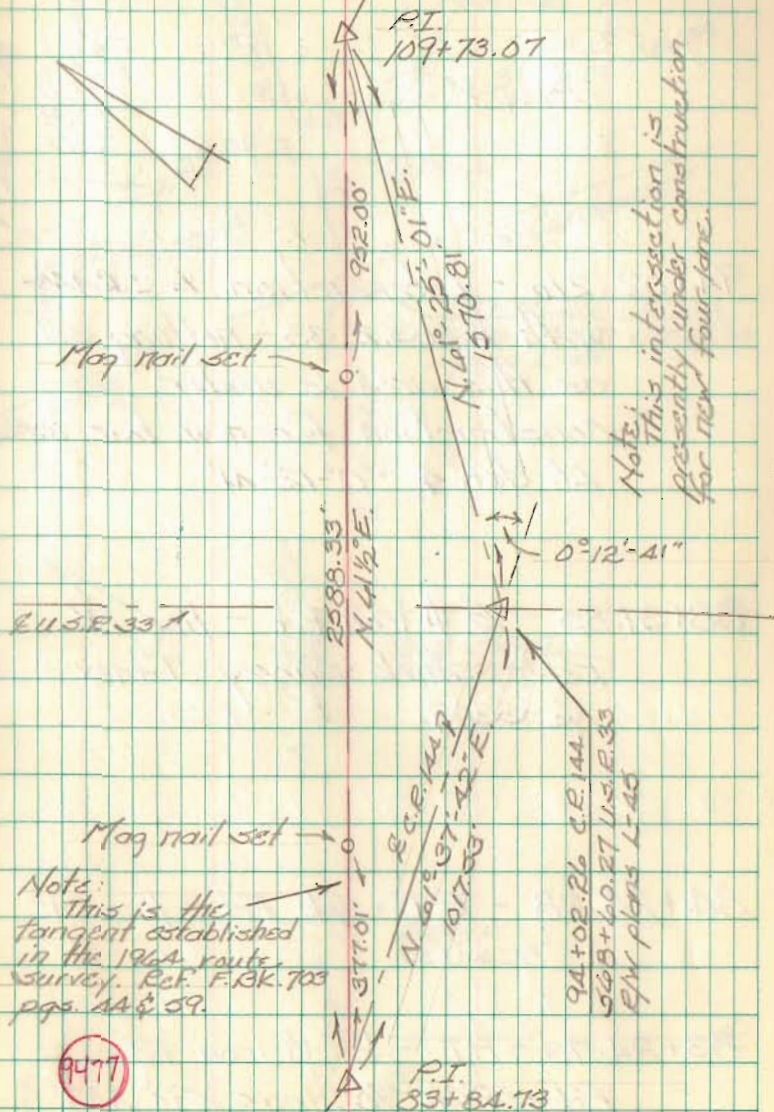 P.I.
109+73.07
952.00'
N. 61°-25'-01" E.
1570.81
Note:
This intersection is
presently under construction
for new four-lane.
Mag nail set
0°-12'-41"
2588.33'
N. 41½° E.
℄ U.S.R. 33
℄ C.R. 144
N. 61°-37'-42" E.
1017.53'
94+02.26 C.R. 144
568+60.27 U.S.R. 33
R/W plans L-45
Mag nail set
Note:
This is the
tangent established
in the 1964 route
survey. Ref. F.BK. 703
pgs. 44 & 59.
377.01'
9477
P.I.
83+84.73